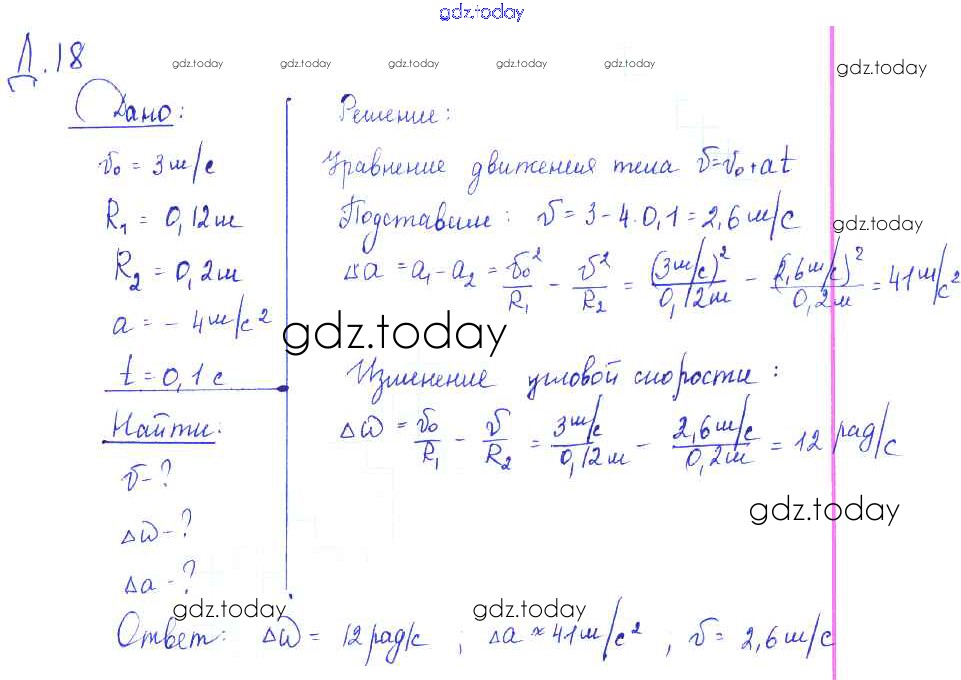 gdz.today
Д.18
gdz.today gdz.today gdz.today gdz.today gdz.today
gdz.today
Дано:
v₀ = 3 м/с
R₁ = 0,12 м
R₂ = 0,2 м
a = - 4 м/с²
t = 0,1 с
Найти:
v - ?
Δω - ?
Δa - ?
Решение:
Уравнение движения тела v = v₀ + at
Подставим: v = 3 - 4 · 0,1 = 2,6 м/с
gdz.today
Δa = a₁ - a₂ = v₀²/R₁ - v²/R₂ = (3 м/с)²/0,12 м - (2,6 м/с)²/0,2 м = 41 м/с²
gdz.today
Изменение угловой скорости:
Δω = v₀/R₁ - v/R₂ = 3 м/с/0,12 м - 2,6 м/с/0,2 м = 12 рад/с
gdz.today
gdz.today gdz.today
Ответ: Δω = 12 рад/с ; Δa ≈ 41 м/с² ; v = 2,6 м/с